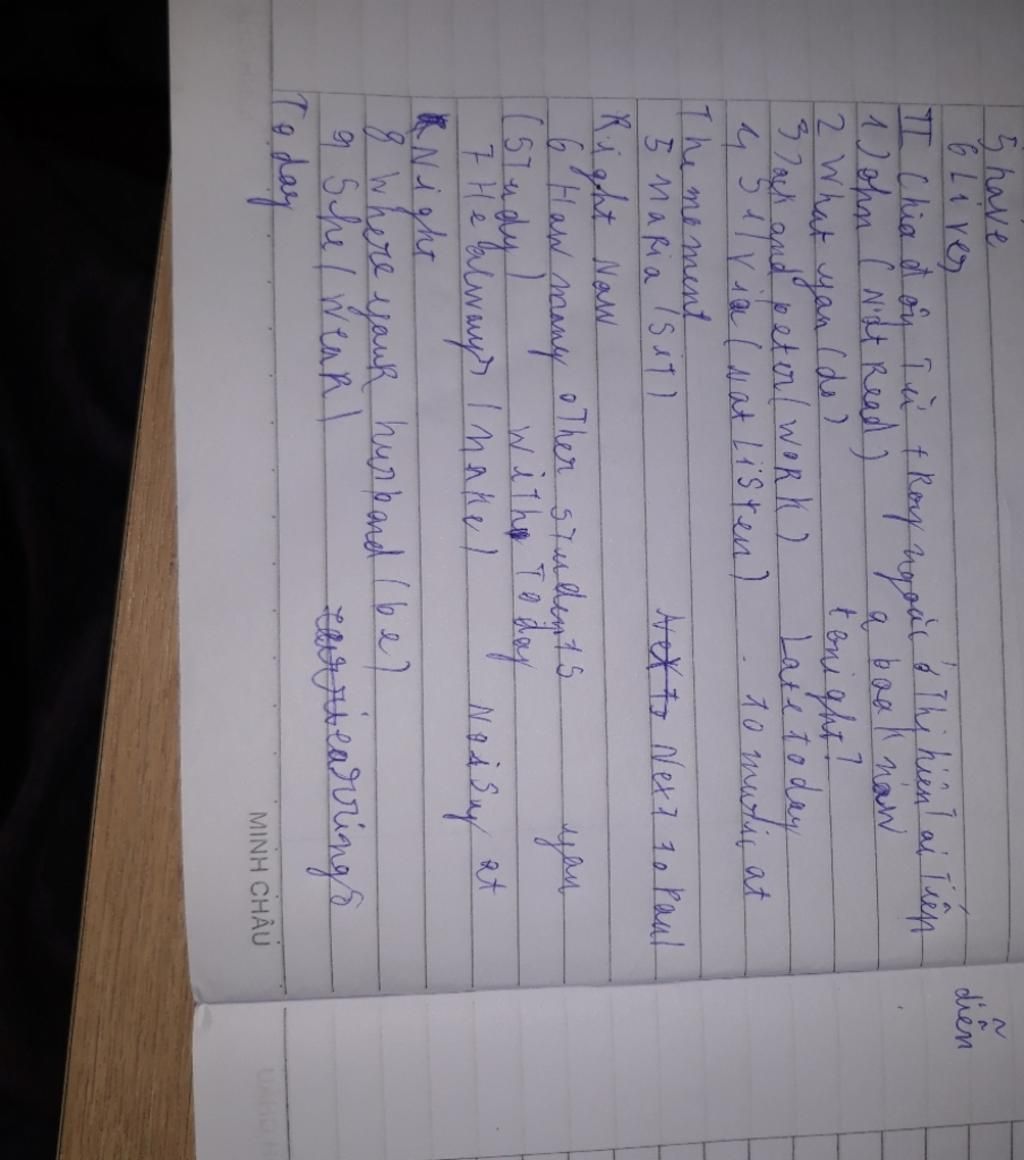 5 have
6 Lives
II Chia động Từ trong ngoặc ở Thì hiện Tại Tiếp diễn
1 John (Not Read) a book now
2 What you (do) tonight?
3 Jack and peter (WORK) Late today
4 Silvia (Not Listen) . To music at
The moment
5 Maria (SiT) Next To Paul
Right Now
6 How many oTher sTudenTs you
(STudy) wiTh Today
7 He always (MAKe) NoiSy at
Night
8 Where your husband (be)
9 She (WEAR) earrings
Today
MINH CHÂU